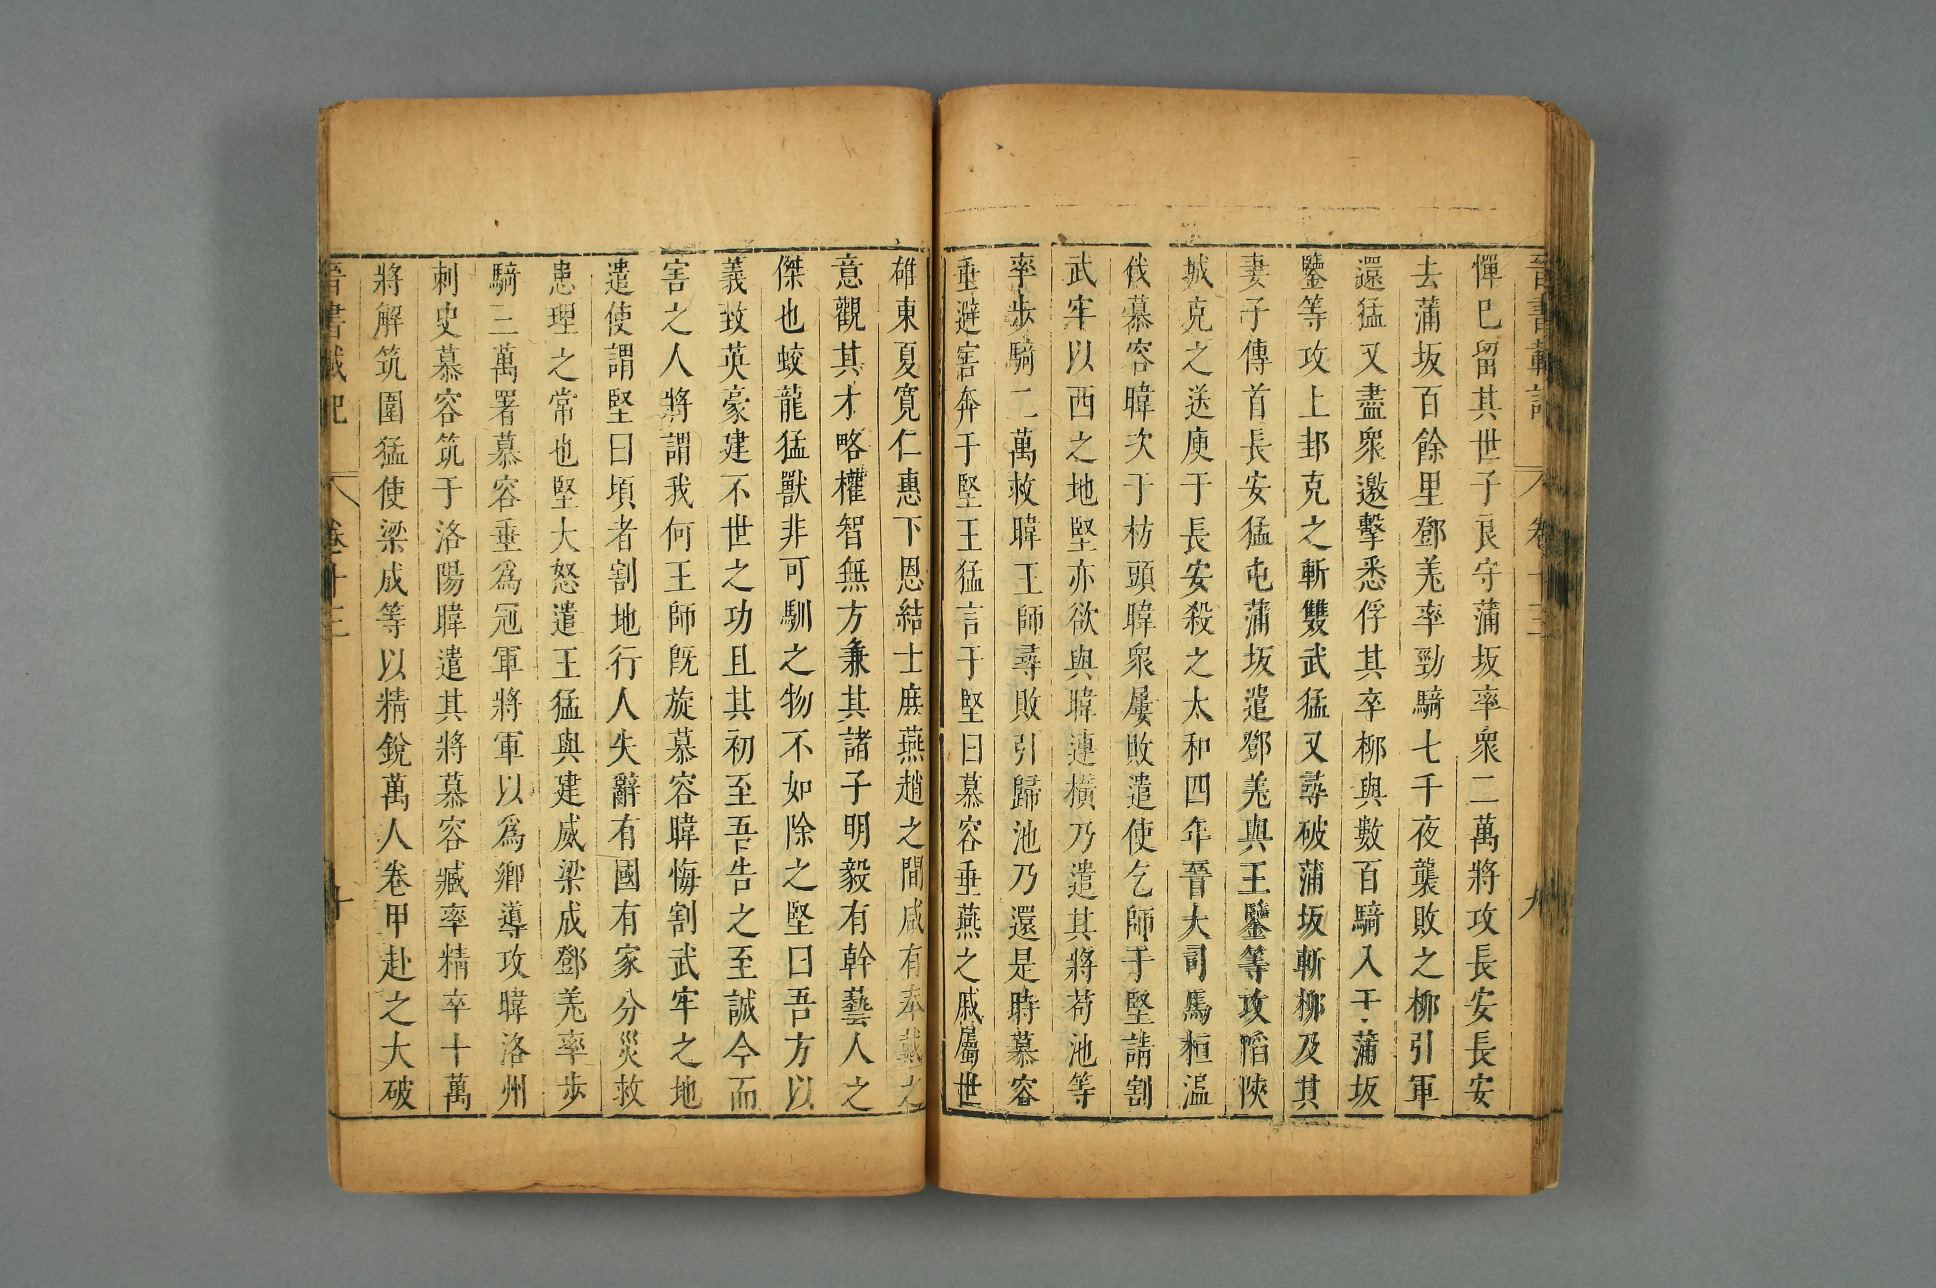 晉書載記 卷十三 九
憚已留其世子良守蒲坂率衆二萬將攻長安長安
去蒲坂百餘里鄧羌率勁騎七千夜襲敗之柳引軍
還猛又盡衆邀擊悉俘其卒柳與數百騎入于蒲坂
鑒等攻上邽克之斬雙武猛又尋破蒲坂斬柳及其
妻子傳首長安猛屯蒲坂遣鄧羌與王鑒等攻䧟陝
城克之送庾于長安殺之太和四年晉大司馬桓温
伐慕容暐次于枋頭暐衆屢敗遣使乞師于堅請割
武牢以西之地堅亦欲與暐連橫乃遣其將苟池等
率步騎二萬救暐王師尋敗引歸池乃還是時慕容
垂避害奔于堅王猛言于堅曰慕容垂燕之戚屬世
雄東夏寬仁惠下恩結士庶燕趙之間咸有奉戴之
意觀其才略權智無方兼其諸子明毅有幹藝人之
傑也蛟龍猛獸非可馴之物不如除之堅曰吾方以
義致英豪建不世之功且其初至吾告之至誠今而
害之人將謂我何王師旣旋慕容暐悔割武牢之地
遣使謂堅曰頃者割地行人失辭有國有家分災救
患理之常也堅大怒遣王猛與建威梁成鄧羌率步
騎三萬署慕容垂爲冠軍將軍以爲鄉導攻暐洛州
刺史慕容筑于洛陽暐遣其將慕容臧率精卒十萬
將解筑圍猛使梁成等以精銳萬人卷甲赴之大破
晉書載記 卷十三 十